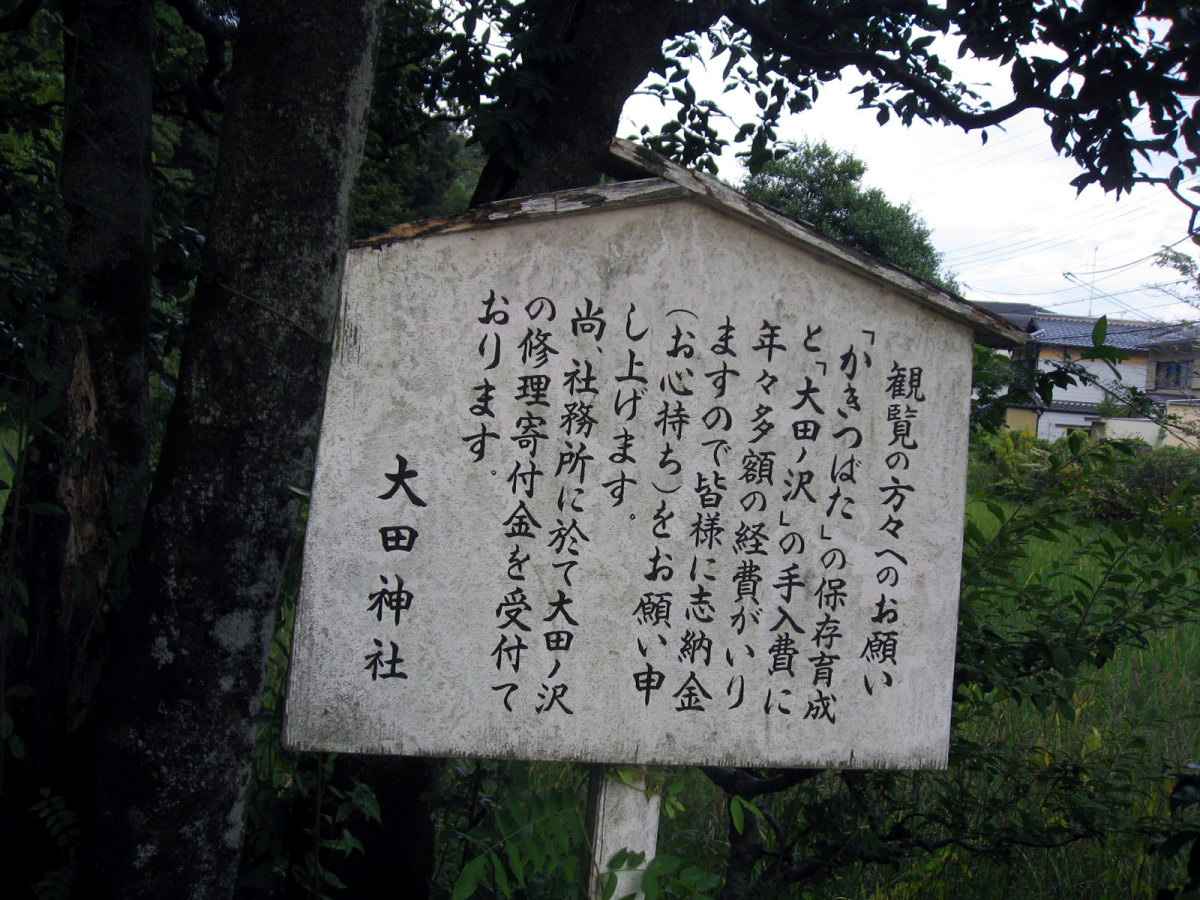 観覧の方々へのお願い
「かきつばた」の保存育成
と「大田ノ沢」の手入費に
年々多額の経費がいり
ますので皆様に志納金
(お心持ち)をお願い申
し上げます。
尚、社務所に於て大田ノ沢
の修理寄付金を受付て
おります。
大田神社